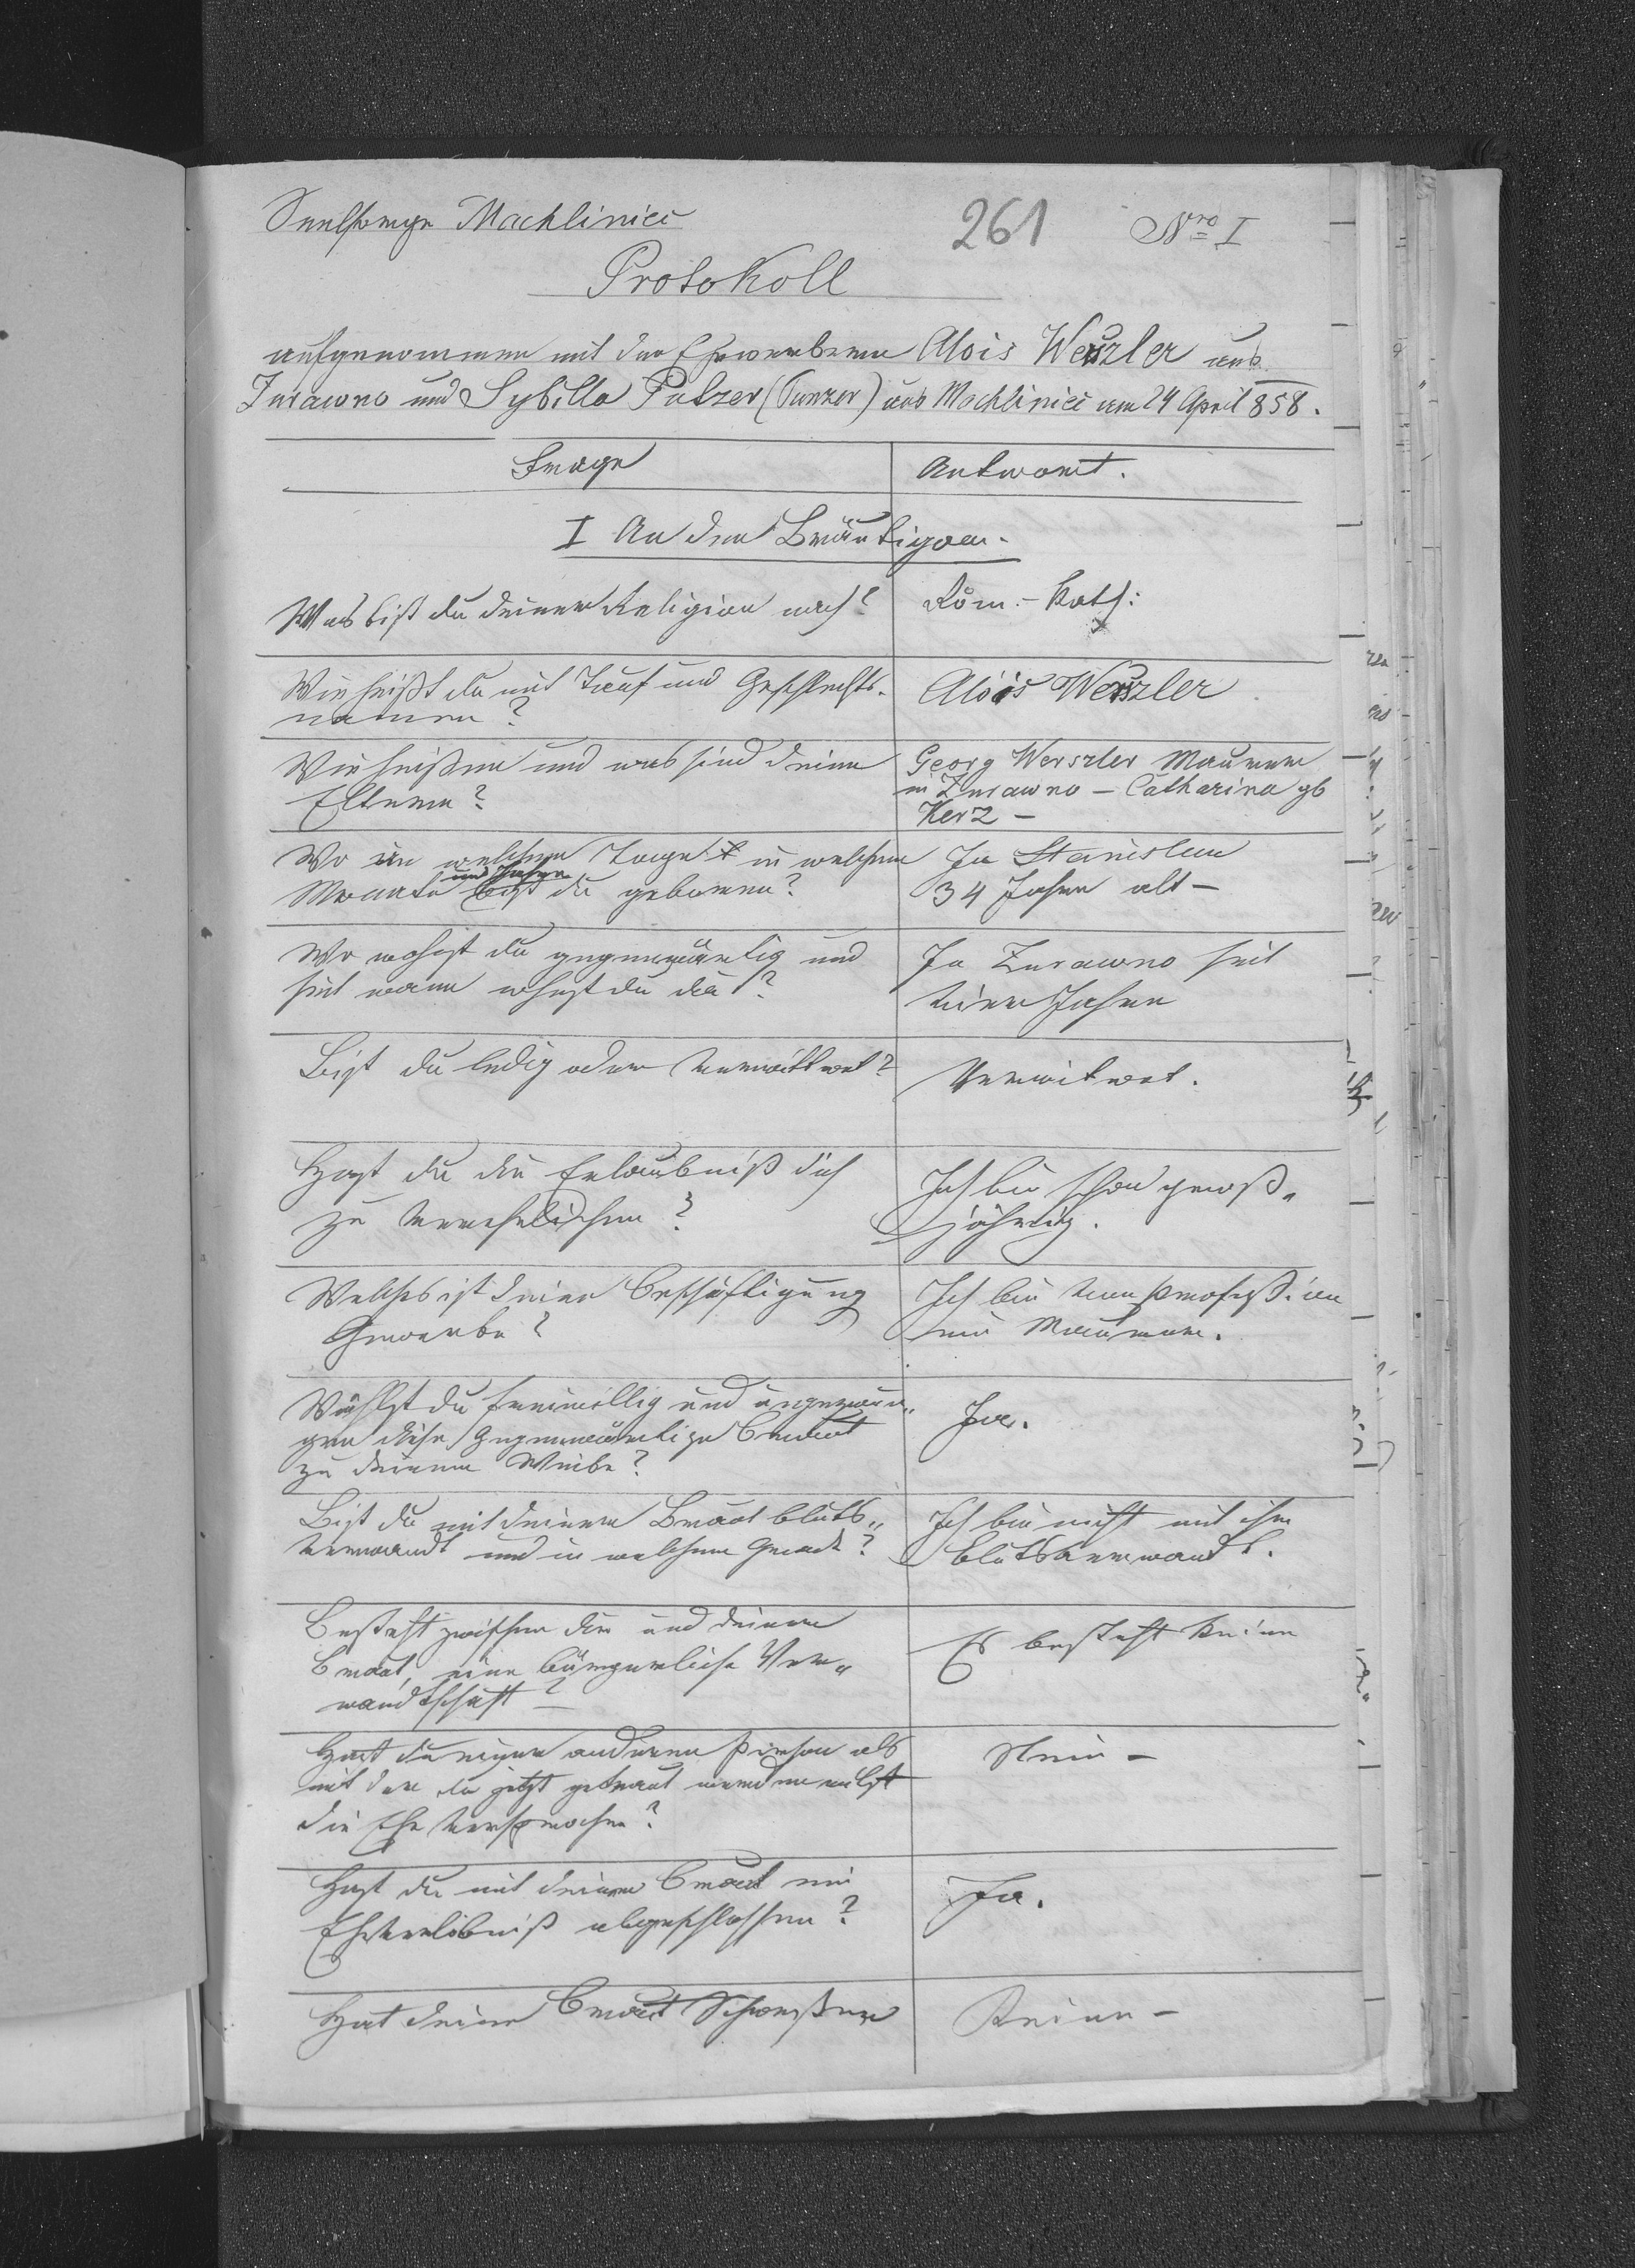 Seelsorge Machliniec
261 Nro I
Protokoll
aufgenommen mit den Ehewerbern Alois Werszler aus
Zurawno und Sybilla Pulzer (Punzer) aus Machliniec am 24 April 858.
Frage
Antwort.
I An den Bräutigam.
Was bist du deiner Religion nach?
Röm.- Kath:
Wie heißt du mit Tauf und Geschlechts-
namen?
Alois Werszler
Wie heißen und was sind deine
Eltern?
Georg Werszler Maurer
in Zurawno - Catharina gb
Kerz -
Wo an welchem Tage & in welchem
Monate und Jahre bist du geboren?
In Stanislau
34 Jahre alt -
Wo wohnst du gegenwärtig und
seit wann wohnst du da?
In Zurawno seit
vier Jahren
Bist du ledig oder verwittwet?
Verwitwet.
Hast du die Erlaubniß dich
zu verehelichen?
Ich bin schon groß-
jährig.
Welches ist deine Beschäftigung
Gewerbe?
Ich bin von Profeßion
ein Maurer.
Wählst du freiwillig und ungezwun-
gen diese gegenwärtige Braut
zu deinem Weibe?
Ja.
Bist du mit deiner Braut bluts-
verwandt und in welchem Grade?
Ich bin nicht mit ihr
blutsverwandt.
Besteht zwischen dir und deiner
Braut, eine bürgerliche Ver-
wandtschaft?
Es besteht keine
Hast du einer anderen Person als
mit der du jetzt getraut werden willst
die Ehe versprochen?
Nein -
Hast du mit deiner Braut ein
Eheverlöbniß abgeschlossen?
Ja.
Hat deine Braut Schwestern
Keine -